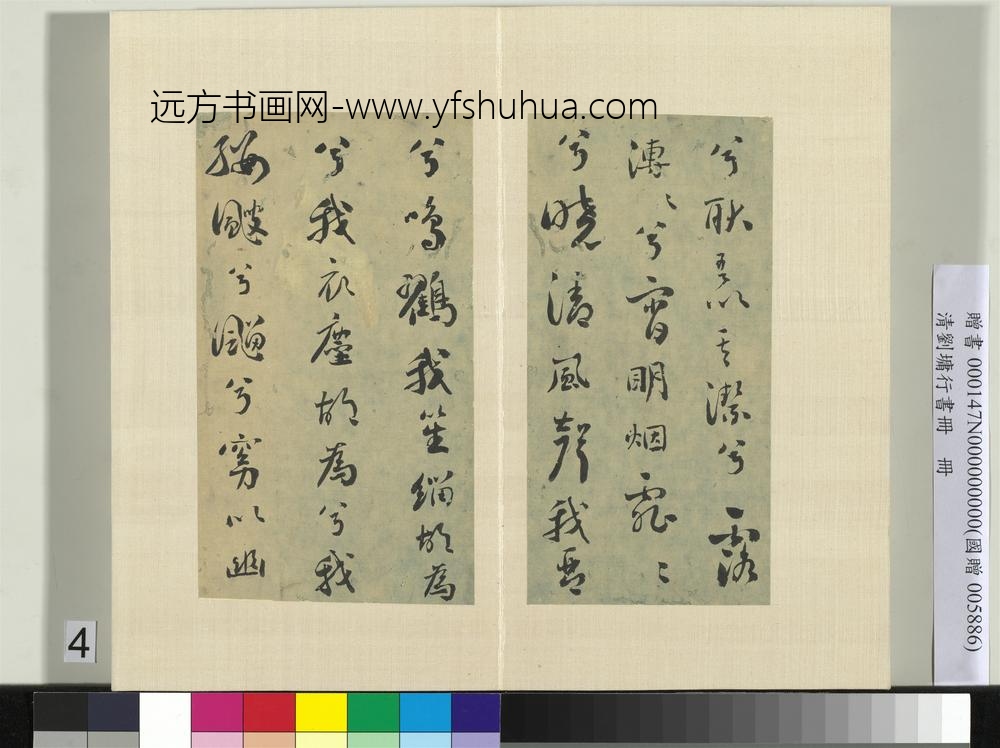 远方书画网-www.yfshuhua.com
兮耿吾以其潔兮露
漙〻兮宵明烟霏〻
兮曉清風聲我琴
兮鳴鸛我笙緇故為
兮我衣塵故為兮我
纓飉兮飀兮窈以幽
贈書 000147N000000000(國贈 005886)
清劉墉行書冊 冊
4